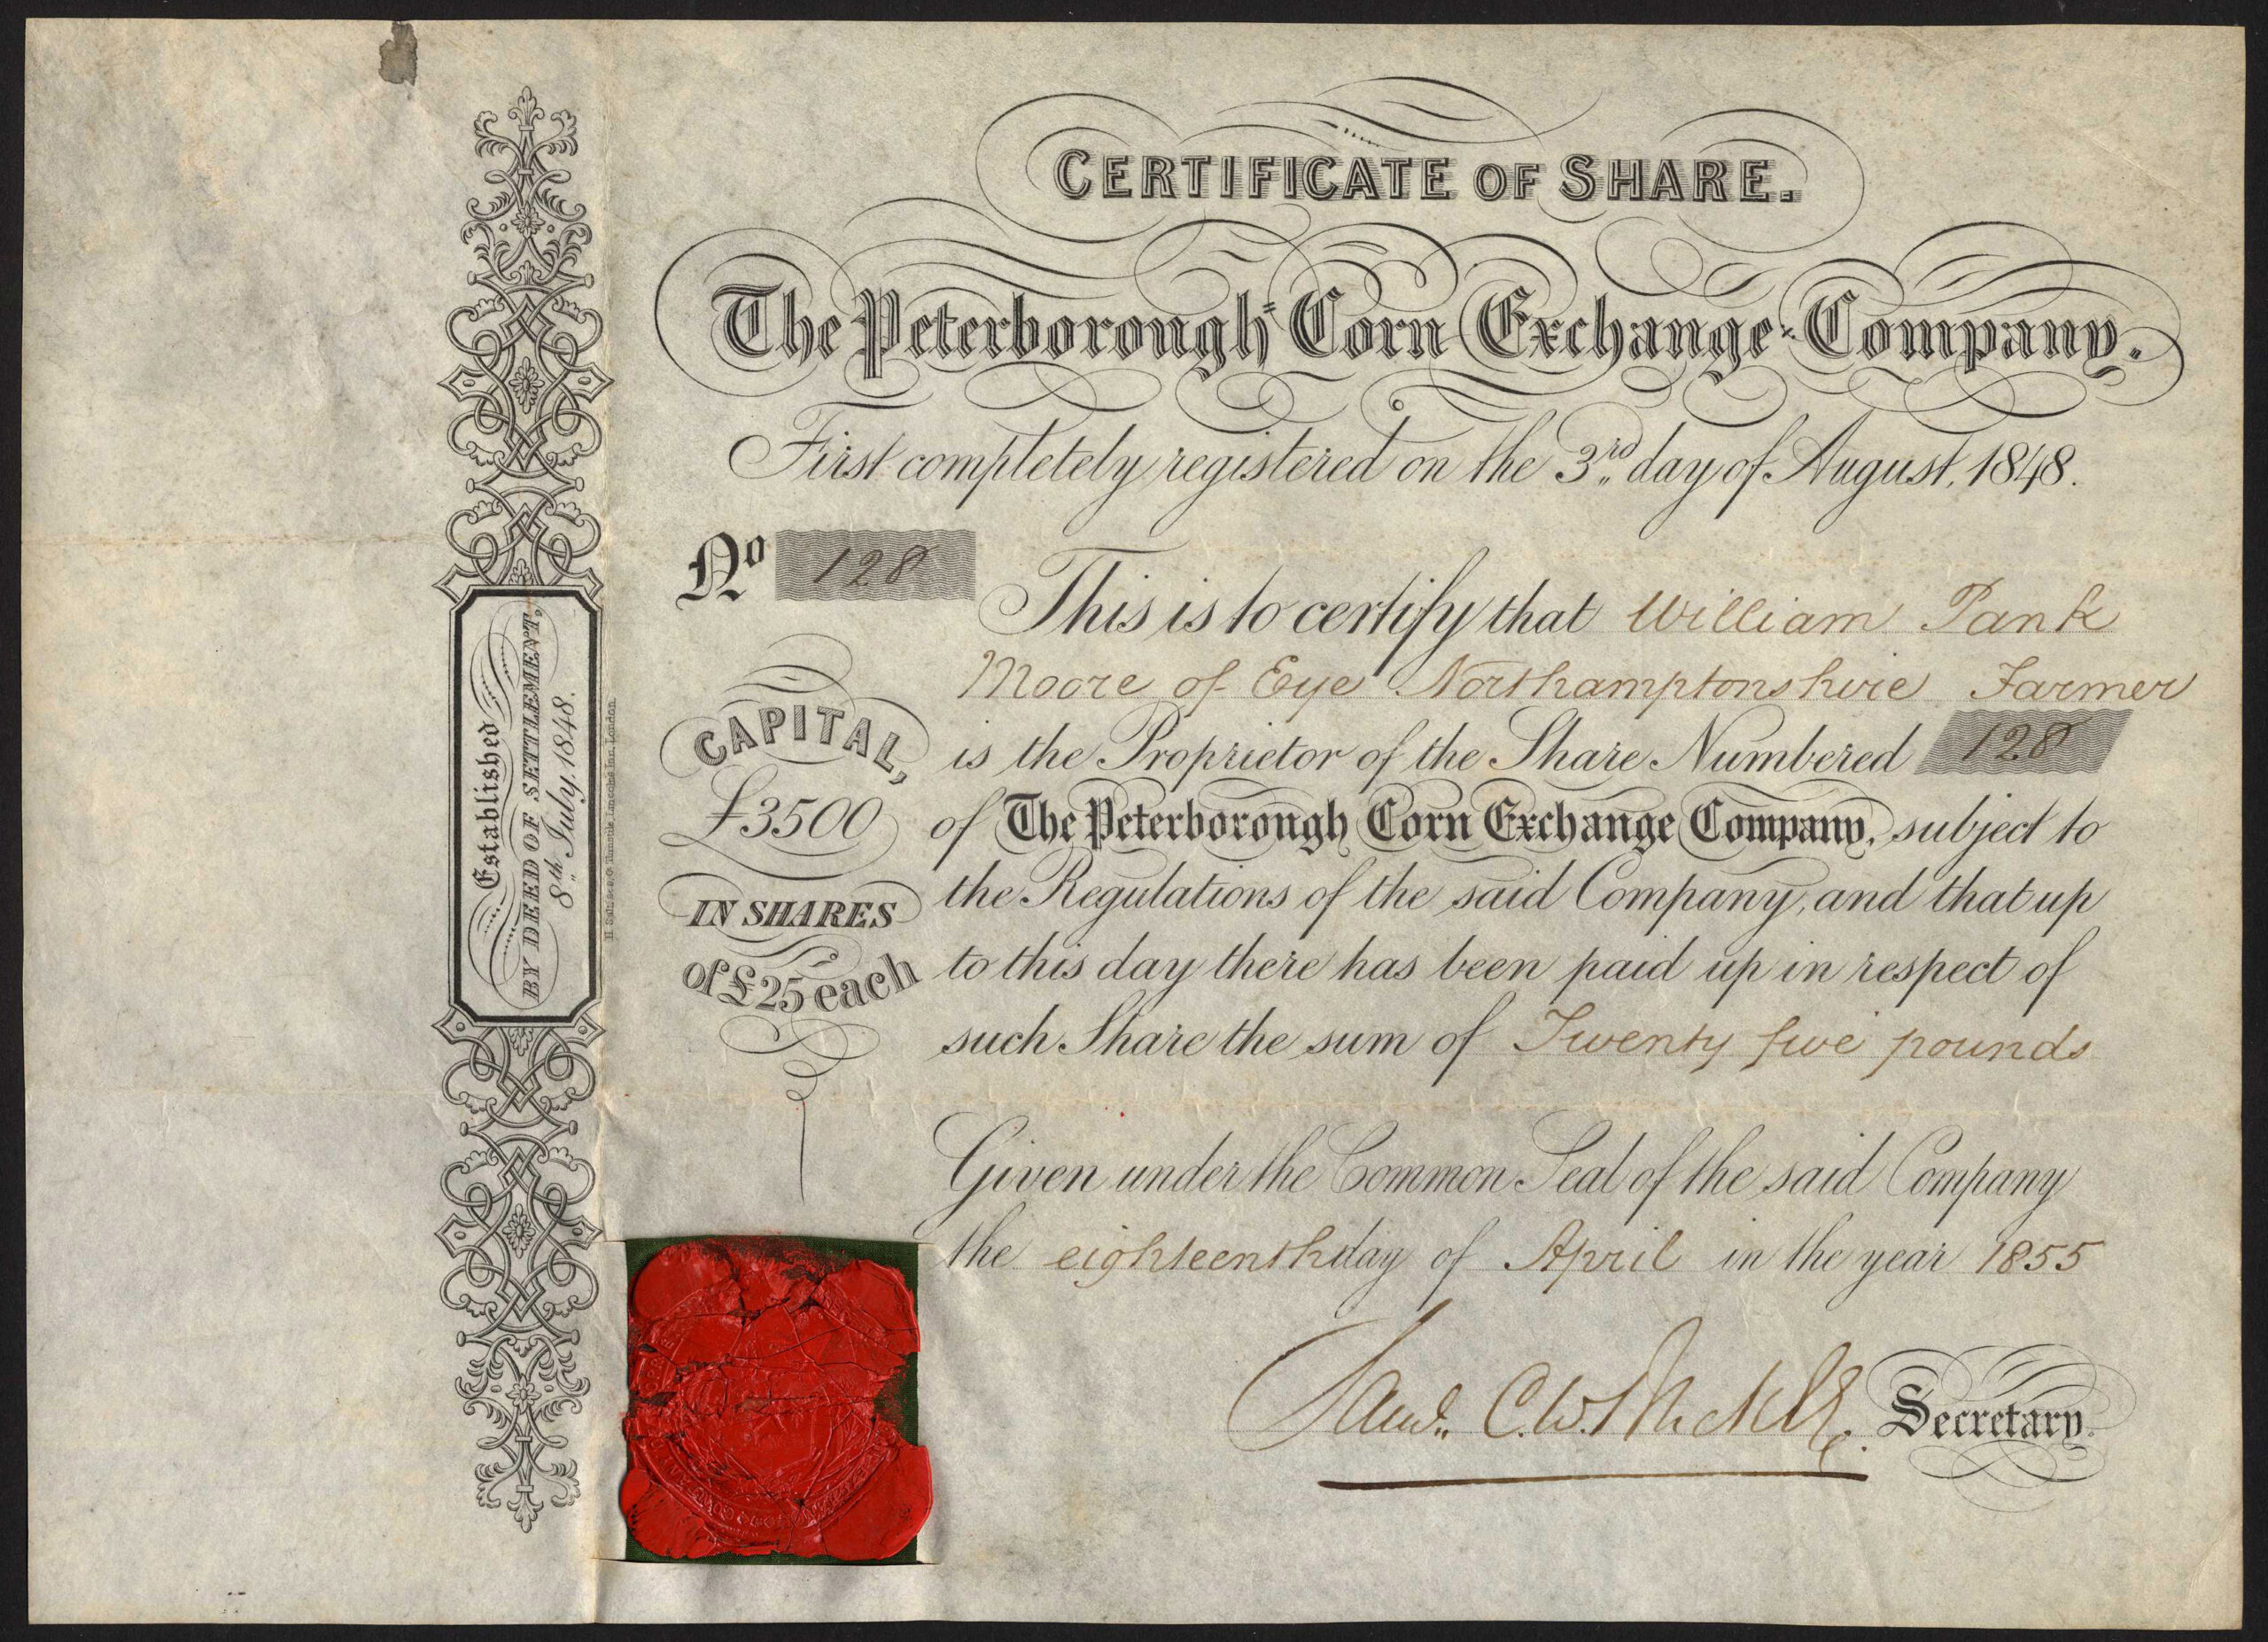 CERTIFICATE OF SHARE.
The Peterborough Corn Exchange Company.
First completely registered on the 3rd day of August, 1848.
No 128
This is to certify that William Pank
Moore of Eye Northamptonshire Farmer
is the Proprietor of the Share Numbered 128
of The Peterborough Corn Exchange Company, subject to
the Regulations of the said Company, and that up
to this day there has been paid up in respect of
such Share the sum of Twenty five pounds
CAPITAL,
£3500
IN SHARES
of £25 each
Given under the Common Seal of the said Company
the eighteenth day of April in the year 1855
C.W.
Secretary.
Established
BY DEED OF SETTLEMENT,
8th July, 1848.
Lincolns Inn, London